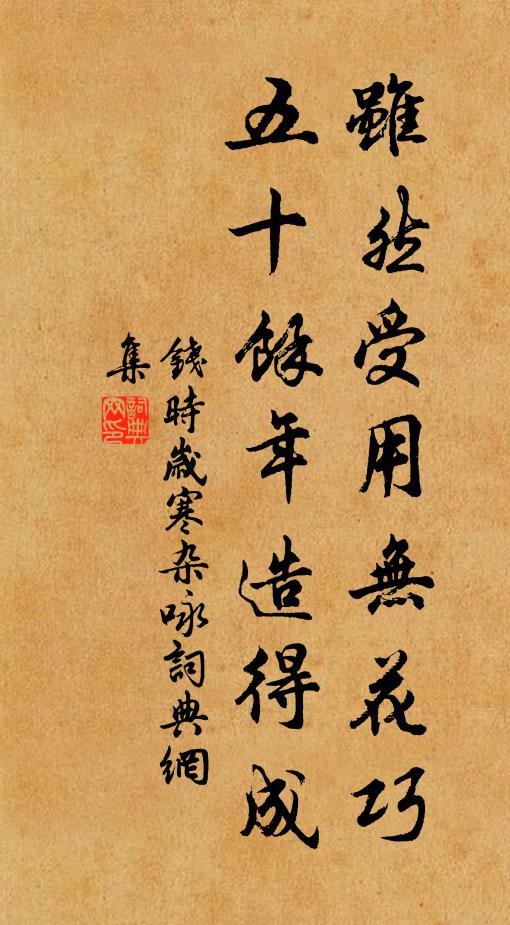 雖然受用無花巧
五十餘年造得成
錢時歲寒杂咏詞典網
集
詞典網印